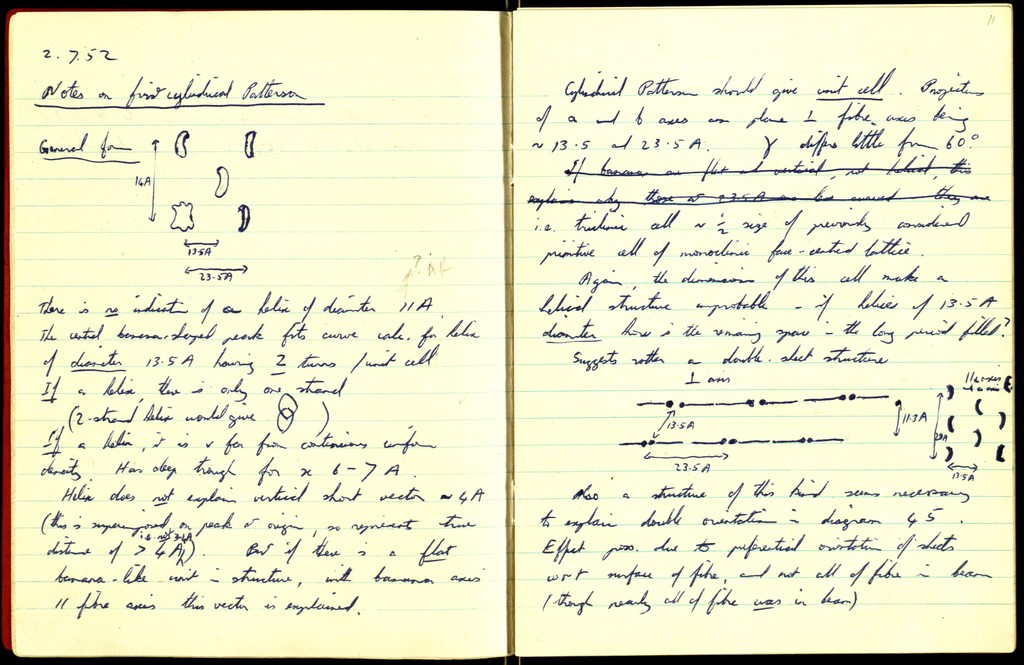 2.7.52
Notes on first cylindrical Patterson
General form
14A
13.5A
23.5A
There is no indication of a helix of diameter 11A.
The central banana-shaped peak fits curve calc. for helix
of diameter 13.5A having 2 turns / unit cell
If a helix, there is only one strand
(2-strand helix would give )
If a helix, it is v far from continuous uniform
density. Has deep trough for x 6-7A.
Helix does not explain vertical short vector ~ 4A
(this is superimposed on peak at origin, so represents true
distance of > 4A). But if there is a flat
i.e. not 3.4A
banana-like unit in structure, with bananas axis
// fibre axis this vector is explained.
11
Cylindrical Patterson should give unit cell. Projections
of a and b axes on plane ⊥ fibre axes being
~ 13.5 and 23.5A. γ differs little from 60°
If bananas are flat and vertical, not helical, this
explains why those at 23.5A are curved they are
i.e. triclinic cell ~ ½ size of previously considered
primitive cell of monoclinic face-centred lattice.
Again, the dimensions of this cell make a
helical structure improbable - if helices of 13.5A
diameter how is the remaining space in the long period filled?
Suggests rather a double-sheet structure
⊥ axis
13.5A
23.5A
11.3A
// axis
13.5A
Also a structure of this kind seems necessary
to explain double orientation in diagram 45.
Effect poss. due to preferential orientation of sheets
wrt surface of fibre, and not all of fibre in beam
(though nearly all of fibre was in beam)